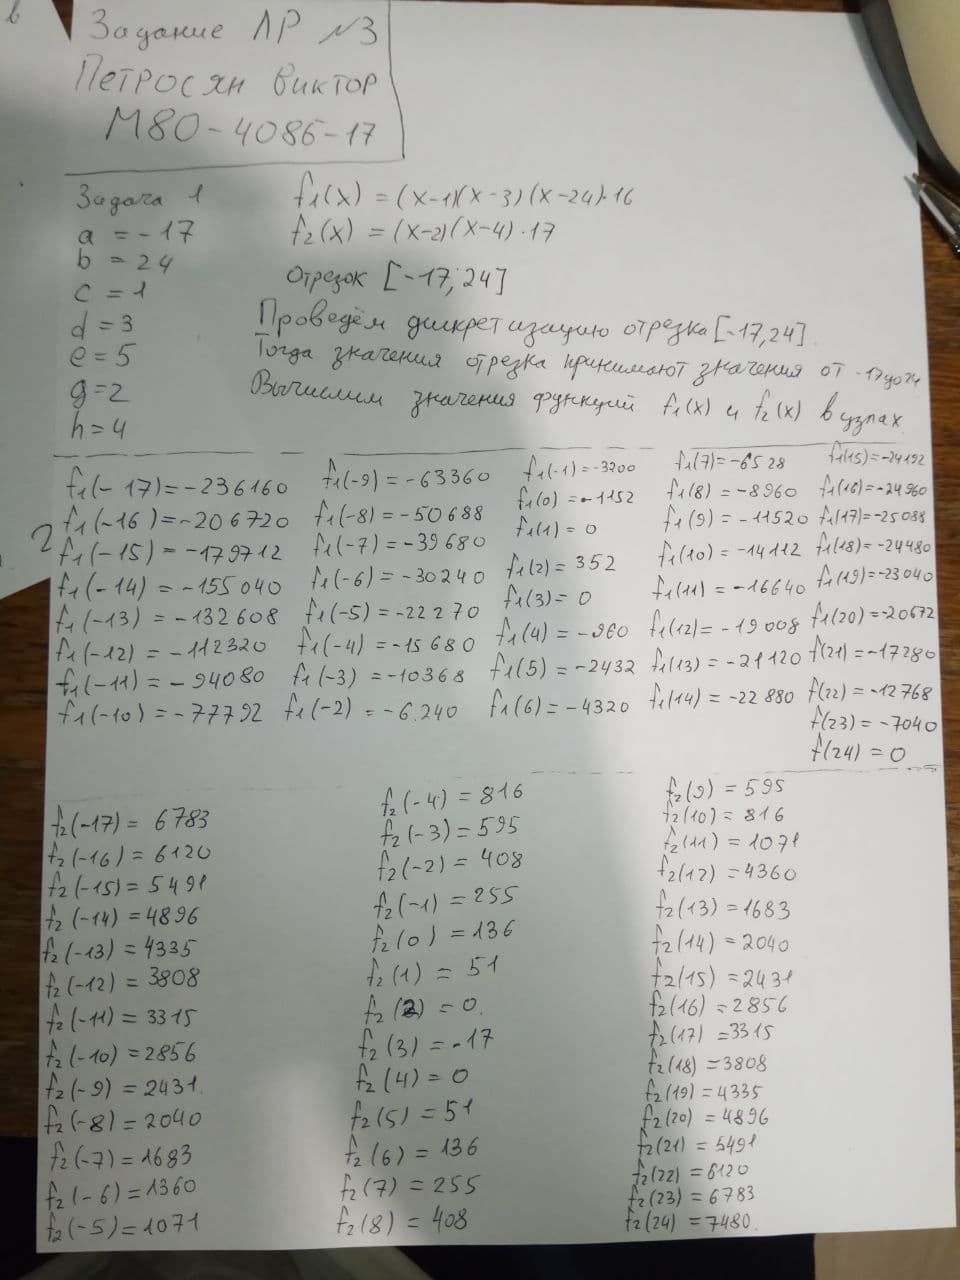 Задание ЛР №3
Петросян Виктор
М80-408Б-17
Задача 1
a = -17
b = 24
c = 1
d = 3
e = 5
g = 2
h = 4
f1(x) = (x-1)(x-3)(x-24)·16
f2(x) = (x-2)(x-4)·17
Отрезок [-17; 24]
Проведём дискретизацию отрезка [-17, 24].
Тогда значения отрезка принимают значения от -17 до 24
Вычислим значения функций f1(x) и f2(x) в узлах.
f1(-17) = -236160
f1(-16) = -206720
f1(-15) = -179712
f1(-14) = -155040
f1(-13) = -132608
f1(-12) = -112320
f1(-11) = -94080
f1(-10) = -77792
f1(-9) = -63360
f1(-8) = -50688
f1(-7) = -39680
f1(-6) = -30240
f1(-5) = -22270
f1(-4) = -15680
f1(-3) = -10368
f1(-2) = -6.240
f1(-1) = -3200
f1(0) = -1152
f1(1) = 0
f1(2) = 352
f1(3) = 0
f1(4) = -960
f1(5) = -2432
f1(6) = -4320
f1(7) = -6528
f1(8) = -8960
f1(9) = -11520
f1(10) = -14112
f1(11) = -16640
f1(12) = -19008
f1(13) = -21120
f1(14) = -22880
f1(15) = -24192
f1(16) = -24960
f1(17) = -25088
f1(18) = -24480
f1(19) = -23040
f1(20) = -20672
f(21) = -17280
f(22) = -12768
f(23) = -7040
f(24) = 0
f2(-17) = 6783
f2(-16) = 6120
f2(-15) = 5491
f2(-14) = 4896
f2(-13) = 4335
f2(-12) = 3808
f2(-11) = 3315
f2(-10) = 2856
f2(-9) = 2431
f2(-8) = 2040
f2(-7) = 1683
f2(-6) = 1360
f2(-5) = 1071
f2(-4) = 816
f2(-3) = 595
f2(-2) = 408
f2(-1) = 255
f2(0) = 136
f2(1) = 51
f2(2) = 0.
f2(3) = -17
f2(4) = 0
f2(5) = 51
f2(6) = 136
f2(7) = 255
f2(8) = 408
f2(9) = 595
f2(10) = 816
f2(11) = 1071
f2(12) = 4360
f2(13) = 1683
f2(14) = 2040
f2(15) = 2431
f2(16) = 2856
f2(17) = 3315
f2(18) = 3808
f2(19) = 4335
f2(20) = 4896
f2(21) = 5491
f2(22) = 6120
f2(23) = 6783
f2(24) = 7480.